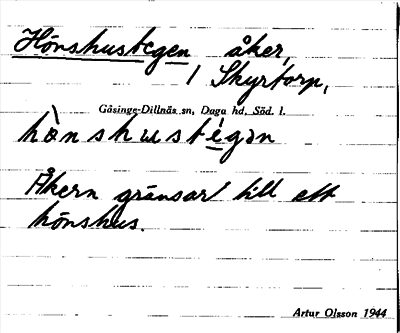 Hönshustegen åker,
1 Skyrtorp,
Gåsinge-Dillnäs sn, Daga hd, Söd. l.
hö̀nshusté̱gən
Åkern gränsar till ett
hönshus.
Artur Olsson 1944